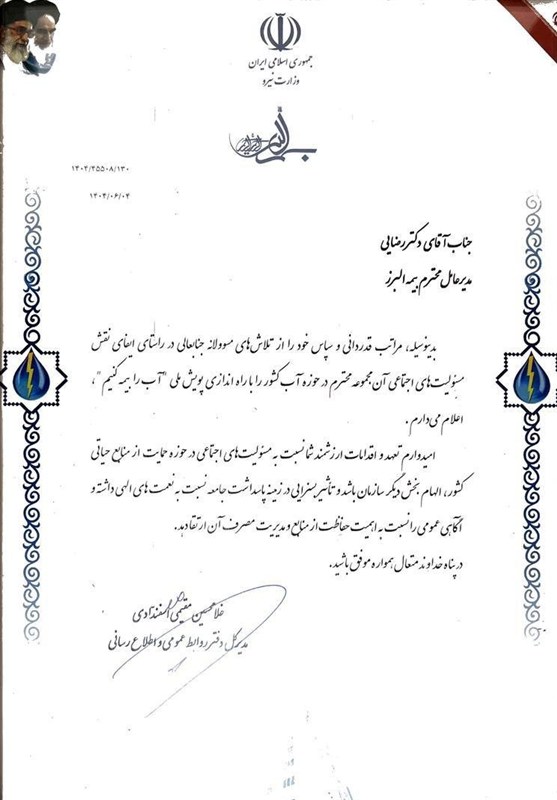 جمهوری اسلامی ایران
وزارت نیرو
۱۴۰۴/۲۵۵۰۸/۱۳۰
۱۴۰۴/۰۶/۰۴
جناب آقای دکتر رضایی
مدیرعامل محترم بیمه البرز
بدینوسیله، مراتب قدردانی و سپاس خود را از تلاش‌های مسوولانه جنابعالی در راستای ایفای نقش
مسئولیت‌های اجتماعی آن مجموعه محترم در حوزه آب کشور را با راه اندازی پویش ملی "آب را بیمه کنیم"،
اعلام می‌دارم.
امیدوارم تعهد و اقدامات ارزشمند شما نسبت به مسئولیت‌های اجتماعی در حوزه حمایت از منابع حیاتی
کشور، الهام بخش دیگر سازمان باشد و تأثیر بسزایی در زمینه پاسداشت جامعه نسبت به نعمت‌های الهی داشته و
آگاهی عمومی را نسبت به اهمیت حفاظت از منابع و مدیریت مصرف آن ارتقا دهد.
در پناه خداوند متعال همواره موفق باشید.
غلامحسین مقیمی اسفندآبادی
مدیرکل دفتر روابط عمومی و اطلاع رسانی